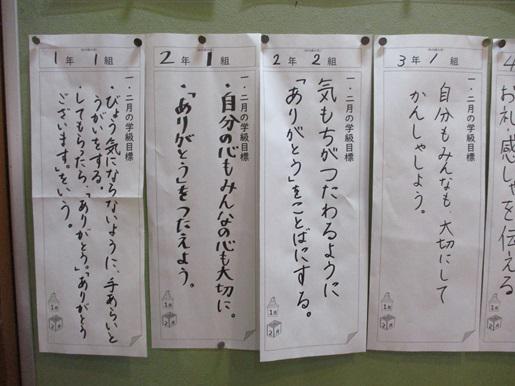 1年 1組
一・二月の学級目標
・びょう気にならないように、手あらいと
うがいをする。
・してもらたら、「ありがとう」、「ありがとう
ございます。」をいう。
1月
2月
2年 1組
一・二月の学級目標
・自分の心もみんなの心も大切に。
・「ありがとう」をつたえよう。
1月
2月
2年 2組
一・二月の学級目標
気もちがつたわるように
「ありがとう」をことばにする。
1月
2月
3年 1組
一・二月の学級目標
自分もみんなも、大切にして
かんしゃしよう。
1月
2月
4
お礼、感しゃを伝える